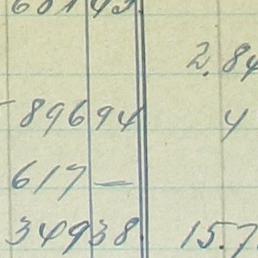 2.84
896 94 4
617 —
349 38 15.7